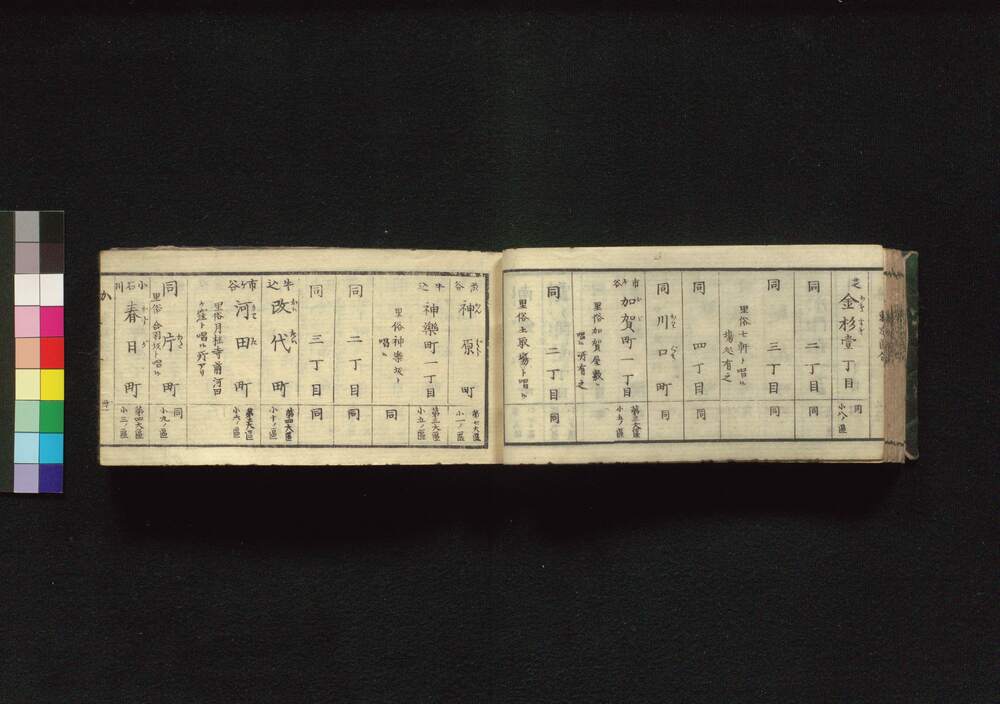 芝 金杉壹丁目 同 小八ノ區
同 二丁目 同
同 三丁目 同
里俗七軒ト唱ル
場処有之
同 四丁目 同
同 川口町 同
市ヶ谷 加賀町一丁目 第三大區 小六ノ區
里俗加賀屋敷
唱ル所有之
同 二丁目 同
里俗土取場ト唱ル
神原町 第七大區 小一ノ區
牛込 神樂町一丁目 第三大區 小五ノ區
里俗神樂坂ト
唱ル 同
同 二丁目 同
同 三丁目 同
牛込 改代町 第四大區 小十ノ區
市ヶ谷 河田町 第三大區 小六ノ區
里俗月桂寺前河田
ヶ窪ト唱ル所アリ
同 片町 同
里俗合羽坂ト唱ル
小石川 春日町 第四大區 小三ノ區
か